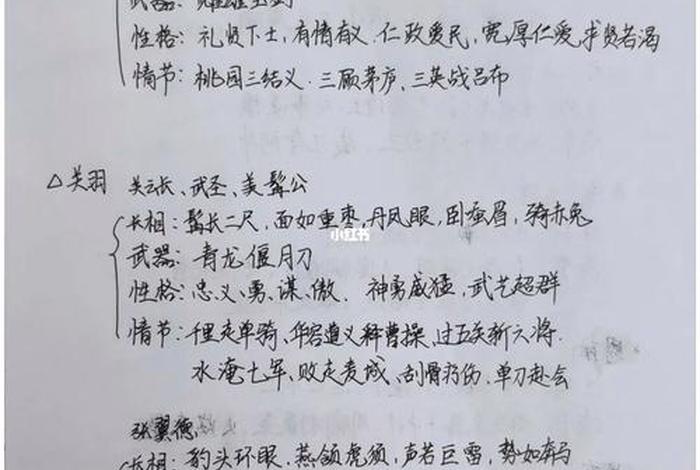 武器：雌雄双剑
性格：礼贤下士，有情有义．仁政爱民，宽厚仁爱，求贤若渴
情节：桃园三结义．三顾茅庐、三英战吕布
△关羽 关云长、武圣、美髯公
长相：髯长二尺，面如重枣，丹凤眼，卧蚕眉，骑赤兔
小红书
武器：青龙偃月刀
性格：忠义、勇、谋、傲． 神勇威猛，武艺超群
情节：千里走单骑、华容道义释曹操，过五关斩六将．
水淹七军、败走麦城、刮骨疗伤、单刀赴会
张翼德
长相：豹头环眼，燕颔虎须，声若巨雷，势如奔马